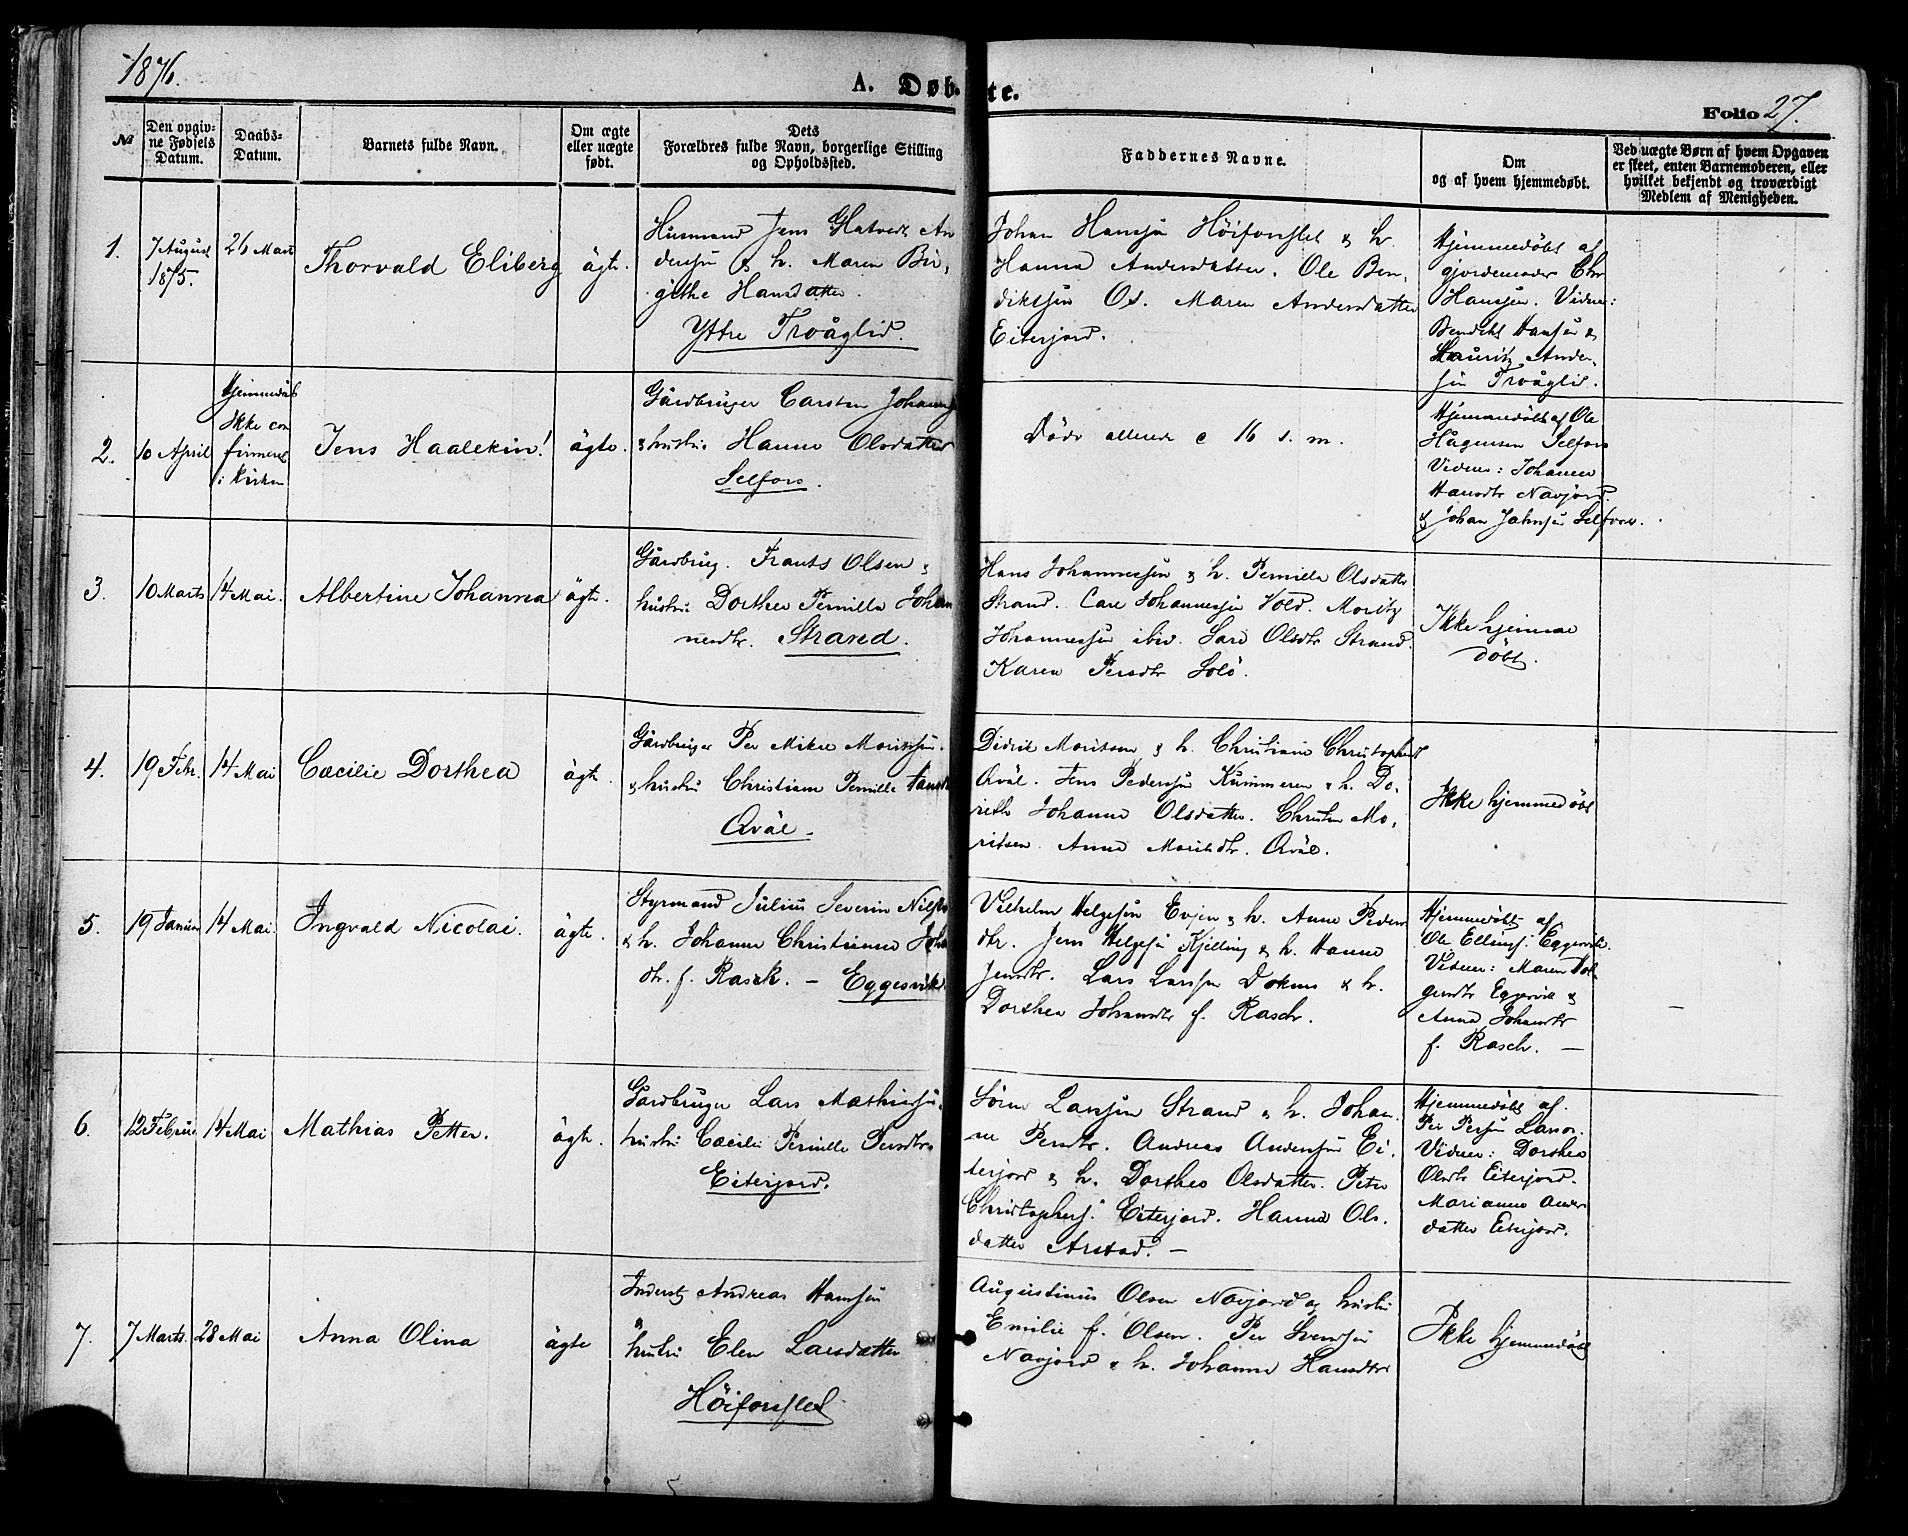 1876.
A. Døb-
te.
Folio 27.
№
Den opgiv-
ne Fødsels
Datum.
Daabs-
Datum.
Barnets fulde Navn.
Om ægte
eller uægte
født.
Dets
Forældres fulde Navn, borgerlige Stilling
og Opholdssted.
Faddernes Navne.
Om
og af hvem hjemmedøbt.
Ved uægte Børn af hvem Opgaven
er skeet, enten Barnemoderen, eller
hvilket bekjendt og troværdigt
Medlem af Menigheden.
1.
7 August
1875.
26 Marts
Thorvald Eliberg
ägte.
Husmand Jens Glatvedt An
dersen & h. Maren Bir,
githe Hansdatter.
Yttre Troåglid.
Johan Hansen Höiforslet & h.
Hanna Andersdatter. Ole Ben,
diksen Os. Maren Andersdatter
Eiterjord.
Hjemmedöbt af
gjordemoder Chr
Hanssen. Vidner:
Bendikt Hansen &
Lauritz Ander-
sen Troåglid.
2.
10 April
Hjemmedöbt
Ikke con
firmeret
i Kirken
Jens Haalekin!
ägte.
Gårdbruger Carsten Johans
& hustru Hanna Olsdatter
Selfors.
Döde allerede c 16 s. m.
Hjemmedöbt af Ole
Hågensen Selfors
Vidner: Johanna
Hansdtr Navjord.
& Johan Jahnsen Selfors.
3.
10 Marts
14 Mai.
Albertine Johanna
ägte.
Gårdbrug. Frants Olsen &
hustru Dorthea Pernille Johan
nesdtr. Strand.
Hans Johannessen & h. Pernilla Olsdatter
Strand. Carl Johannessen Vold. Moritz
Johannessen ibid. Sara Olsdtr Strand.
Karen Persdtr Solö.
Ikke hjemme
döbt.
4.
19 Febr.
14 Mai
Cæcilie Dorthea
ägte.
Gårdbruger Per Mikal Moritssen.
& hustru Christiane Pernille Hansdtr
Qväl.
Didrik Moritsen & h. Christiane Christophersd
Qväl. Jens Pedersen Kummeren & h. Do,
reth Johanna Olsdatter. Christen Mo,
ritsen. Anna Moritsdtr. Qväl.
Ikke hjemmedöbt
5.
19 Januar
14 Mai.
Ingvald Nicolai.
ägte.
Styrmand Julius Severin Nils
& h. Johanna Christianna Joha
dtr. f. Rasck. – Eggesvik
Vilhelm Helgesen Evjen & h. Anna Peders
dtr. Jens Helgesen Kjelling & h. Hanna
Jensdtr. Lars Larssen Dokmo & h.
Dorthea Johansdtr f. Rasch.
Hjemmedöbt af
Ole Ellings: Eggesvik.
Vidner: Maren Hel
gesdtr Eggesvik &
Anna Johansdtr
f. Rasch. –
–
6.
12 Februar
14 Mai
Mathias Petter.
ägte.
Gårdbruger Lars Mathissen.
hustru Cæcilie Pernille Persdtr.
Eiterjord.
Sören Larssen Strand & h. Johan,
ne Persdtr. Andreas Andersen Ei,
terjord & h. Dorthea Olsdatter. Peter
Christophers: Eiterjord. Hanna Ols.
datter Arstad. –
Hjemmedöbt af.
Per Persen Lanor.
Vidner: Dorthea
Olsdtr Eiterjord.
Marianna Anders
datter Eiterjord.
7.
7 Marts.
28 Mai
Anna Olina
ägte
Inderst Andreas Hanssen
&
hustru Elen Larsdatter
Höiforslet
Augustinus Olsen Navjord og hustru
Emilie f. Olsen. Per Svendsen
Navjord & h. Johanna Hansdtr
Ikke hjemmedöbt